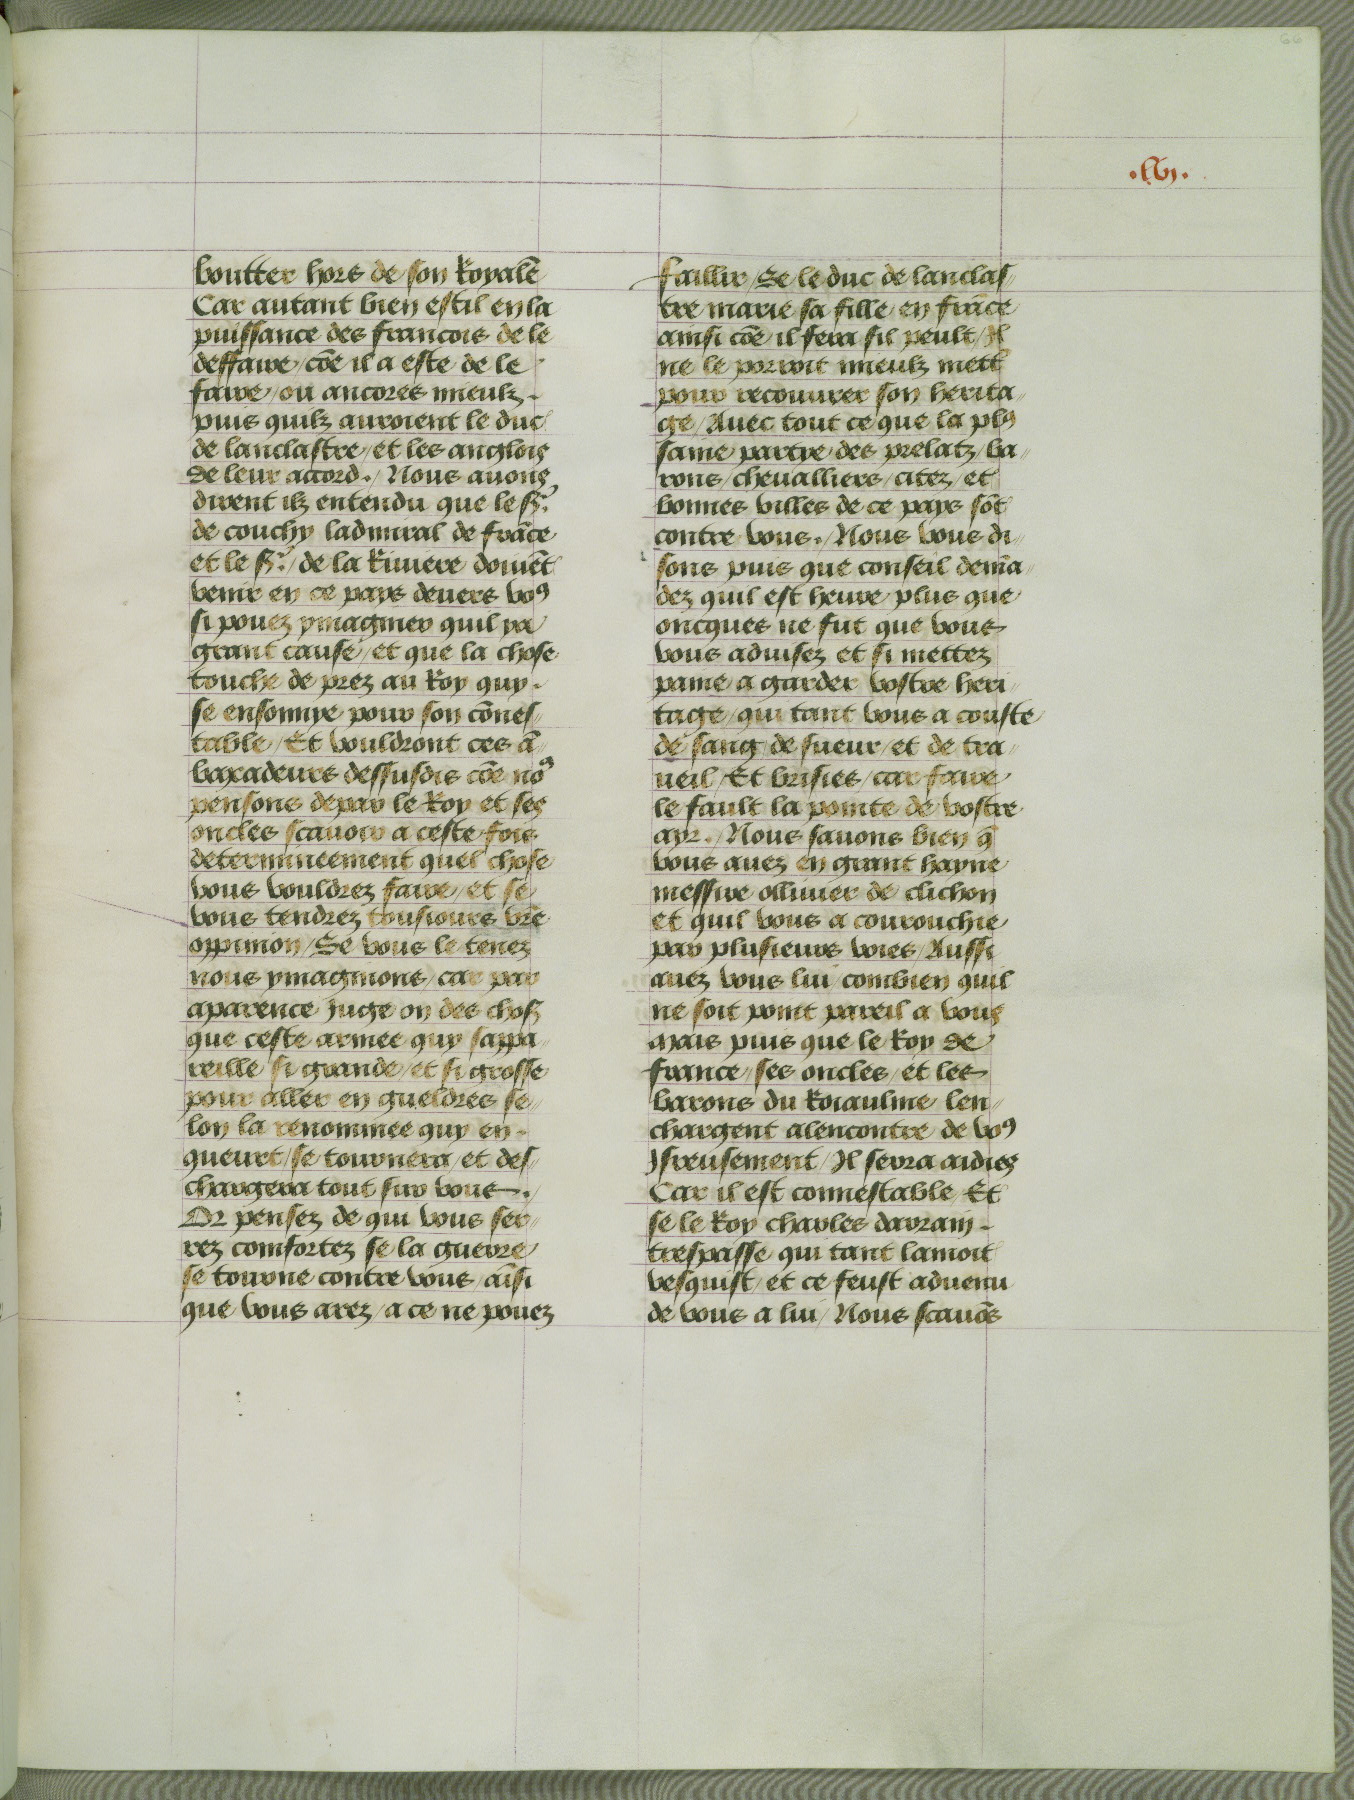 66
.lvj.
boutter hors de son Royalē
Car autant bien estil en la
puissance des francois de le
deffaire / cōe il a este de le
faire / ou ancores mieulz.
puis quilz auroient le duc
de lanclastre / et les anglois
de leur accord. / Nous auons
dirent ilz entendu que le sr.
de couchy ladmiral de frāce
et le sr. / de la Riuiere doiuēt
venir en ce pays deuers voꝰ
si pouez ymaginer quil ya
grant cause / et que la chose
touche de prez au Roy quy.
se ensonnye pour son cōnes/
table / Et vouldront ces ā/
baxadeurs dessusdis cōe noꝰ
pensons depar le Roy et ses
oncles scauoir a ceste fois
determineement quel chose
vous vouldrez faire / et se
vous tendrez tousiours vrē
oppinion / Se vous le tenez
nous ymaginons / car par
aparence juge on des chosz
que ceste armee quy sappa/
reille si grande / et si grosse
pour aller en gueldres se/
lon la renommee quy en-
queurt / se tournera / et des/
chargera tout sur vous. /
Or pensez de qui vous ser/
rez comfortez se la guerre
se tourne contre vous / aīsi
que vous arez / a ce ne pouez
faillir / Se le duc de lanclas/
tre marie sa fille / en frāce
ainsi cōe il fera sil peult / Il
ne le porroit mieulz mett'
pour recouurer son herita/
ge / Auec tout ce que la plꝰ
saine partye des prelatz / ba/
rons / cheualliers / citez / et
bonnes villes de ce pays sōt
contre vous. / Nous vous di/
sons puis que conseil demā/
dez quil est heure plus que
oncques ne fut que vous
vous aduisez et si mettez
paine a garder vostre heri/
tage / qui tant vous a couste
de sang de sueur / et de tra/
ueil / Et brisies / car faire
le fault la pointe de vostre
ayr. / Nous sauons bien q̄
vous auez en grant hayne
messire olliuier de clichon
et quil vous a courouchie
par plusieurs voies / Aussi
auez vous lui / combien quil
ne soit point pareil a vous
Mais puis que le Roy de
france / ses oncles / et les
barons du Roiaulme len/
chargent alencontre de voꝰ
Ireusement / Il serra aidiez
Car il est connestable Et
se le Roy charles darrain-
trespasse qui tant lamoit
vesquist / et ce feust aduenu
de vous a lui / Nous scauōs